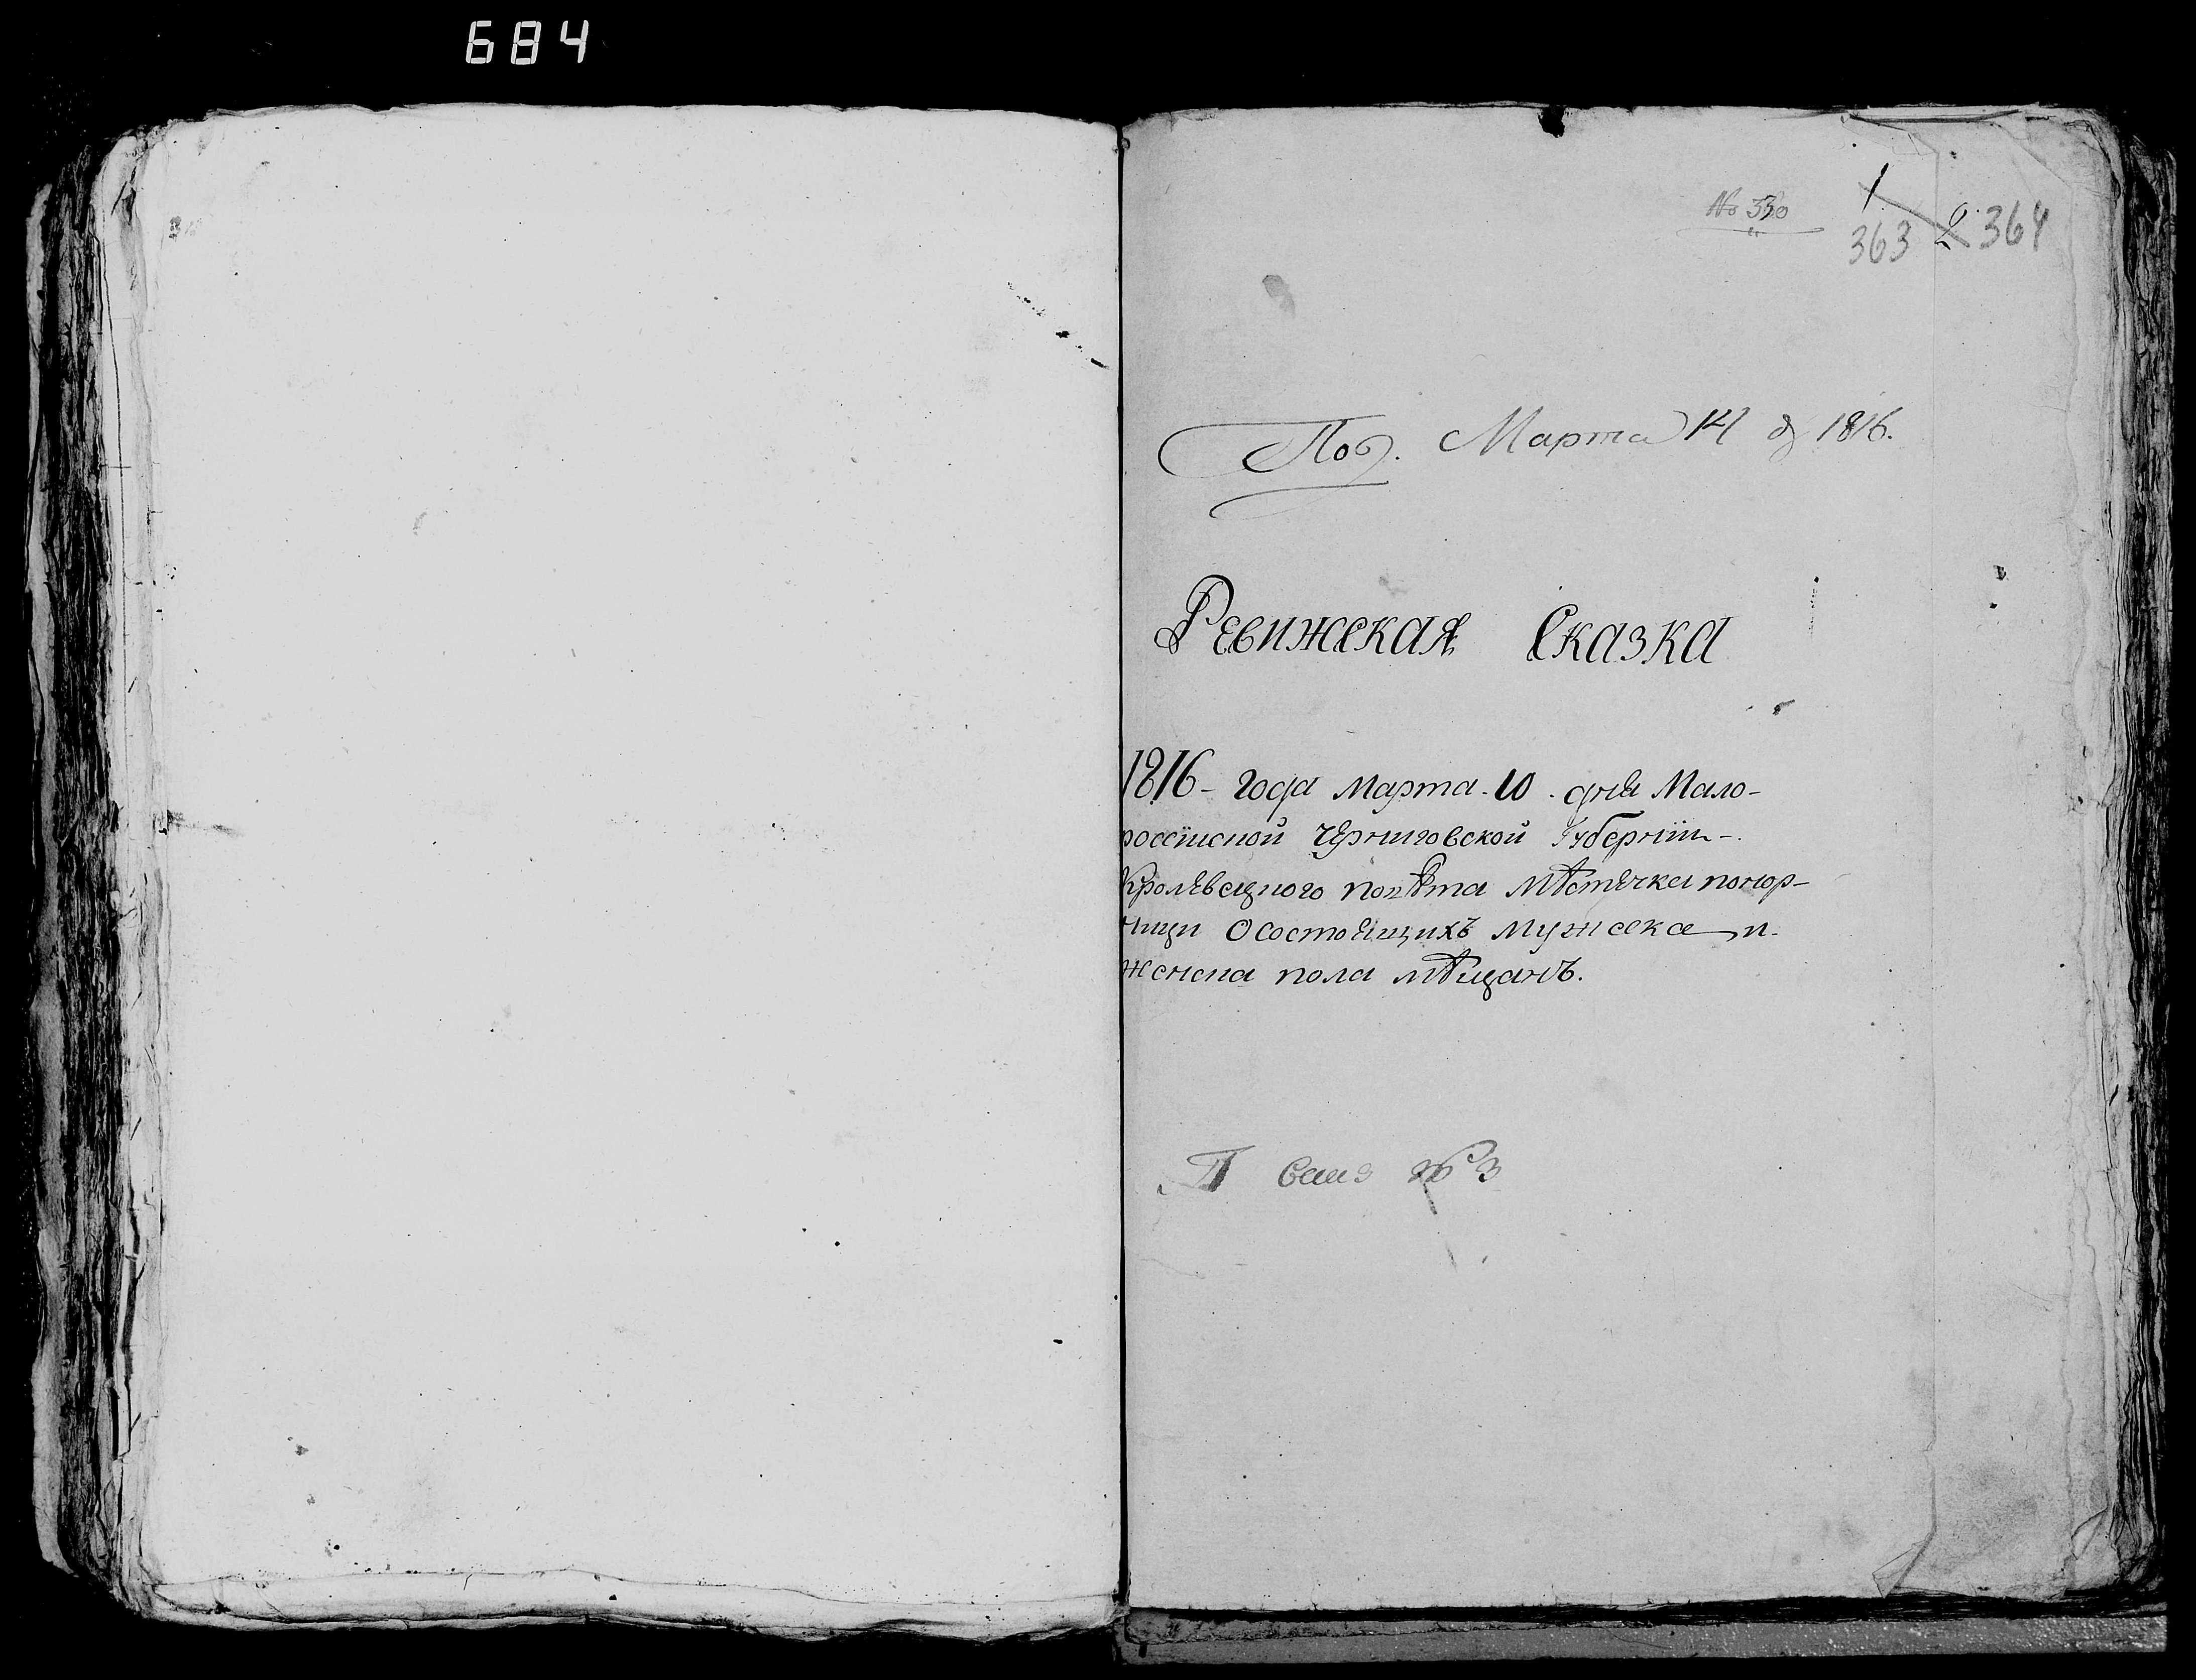 684
1
№ 350
363 2 364
Под. Марта 14 д 1816.
Ревижская Сказка
1816 - года марта. 10 . дня Мало-
россійской черниговской Губерніи -.
Кролевецкого повѣта мѣстечка понор-
ницы О состоящихъ мужеска и.
женска пола мѣщанъ.
№ 3